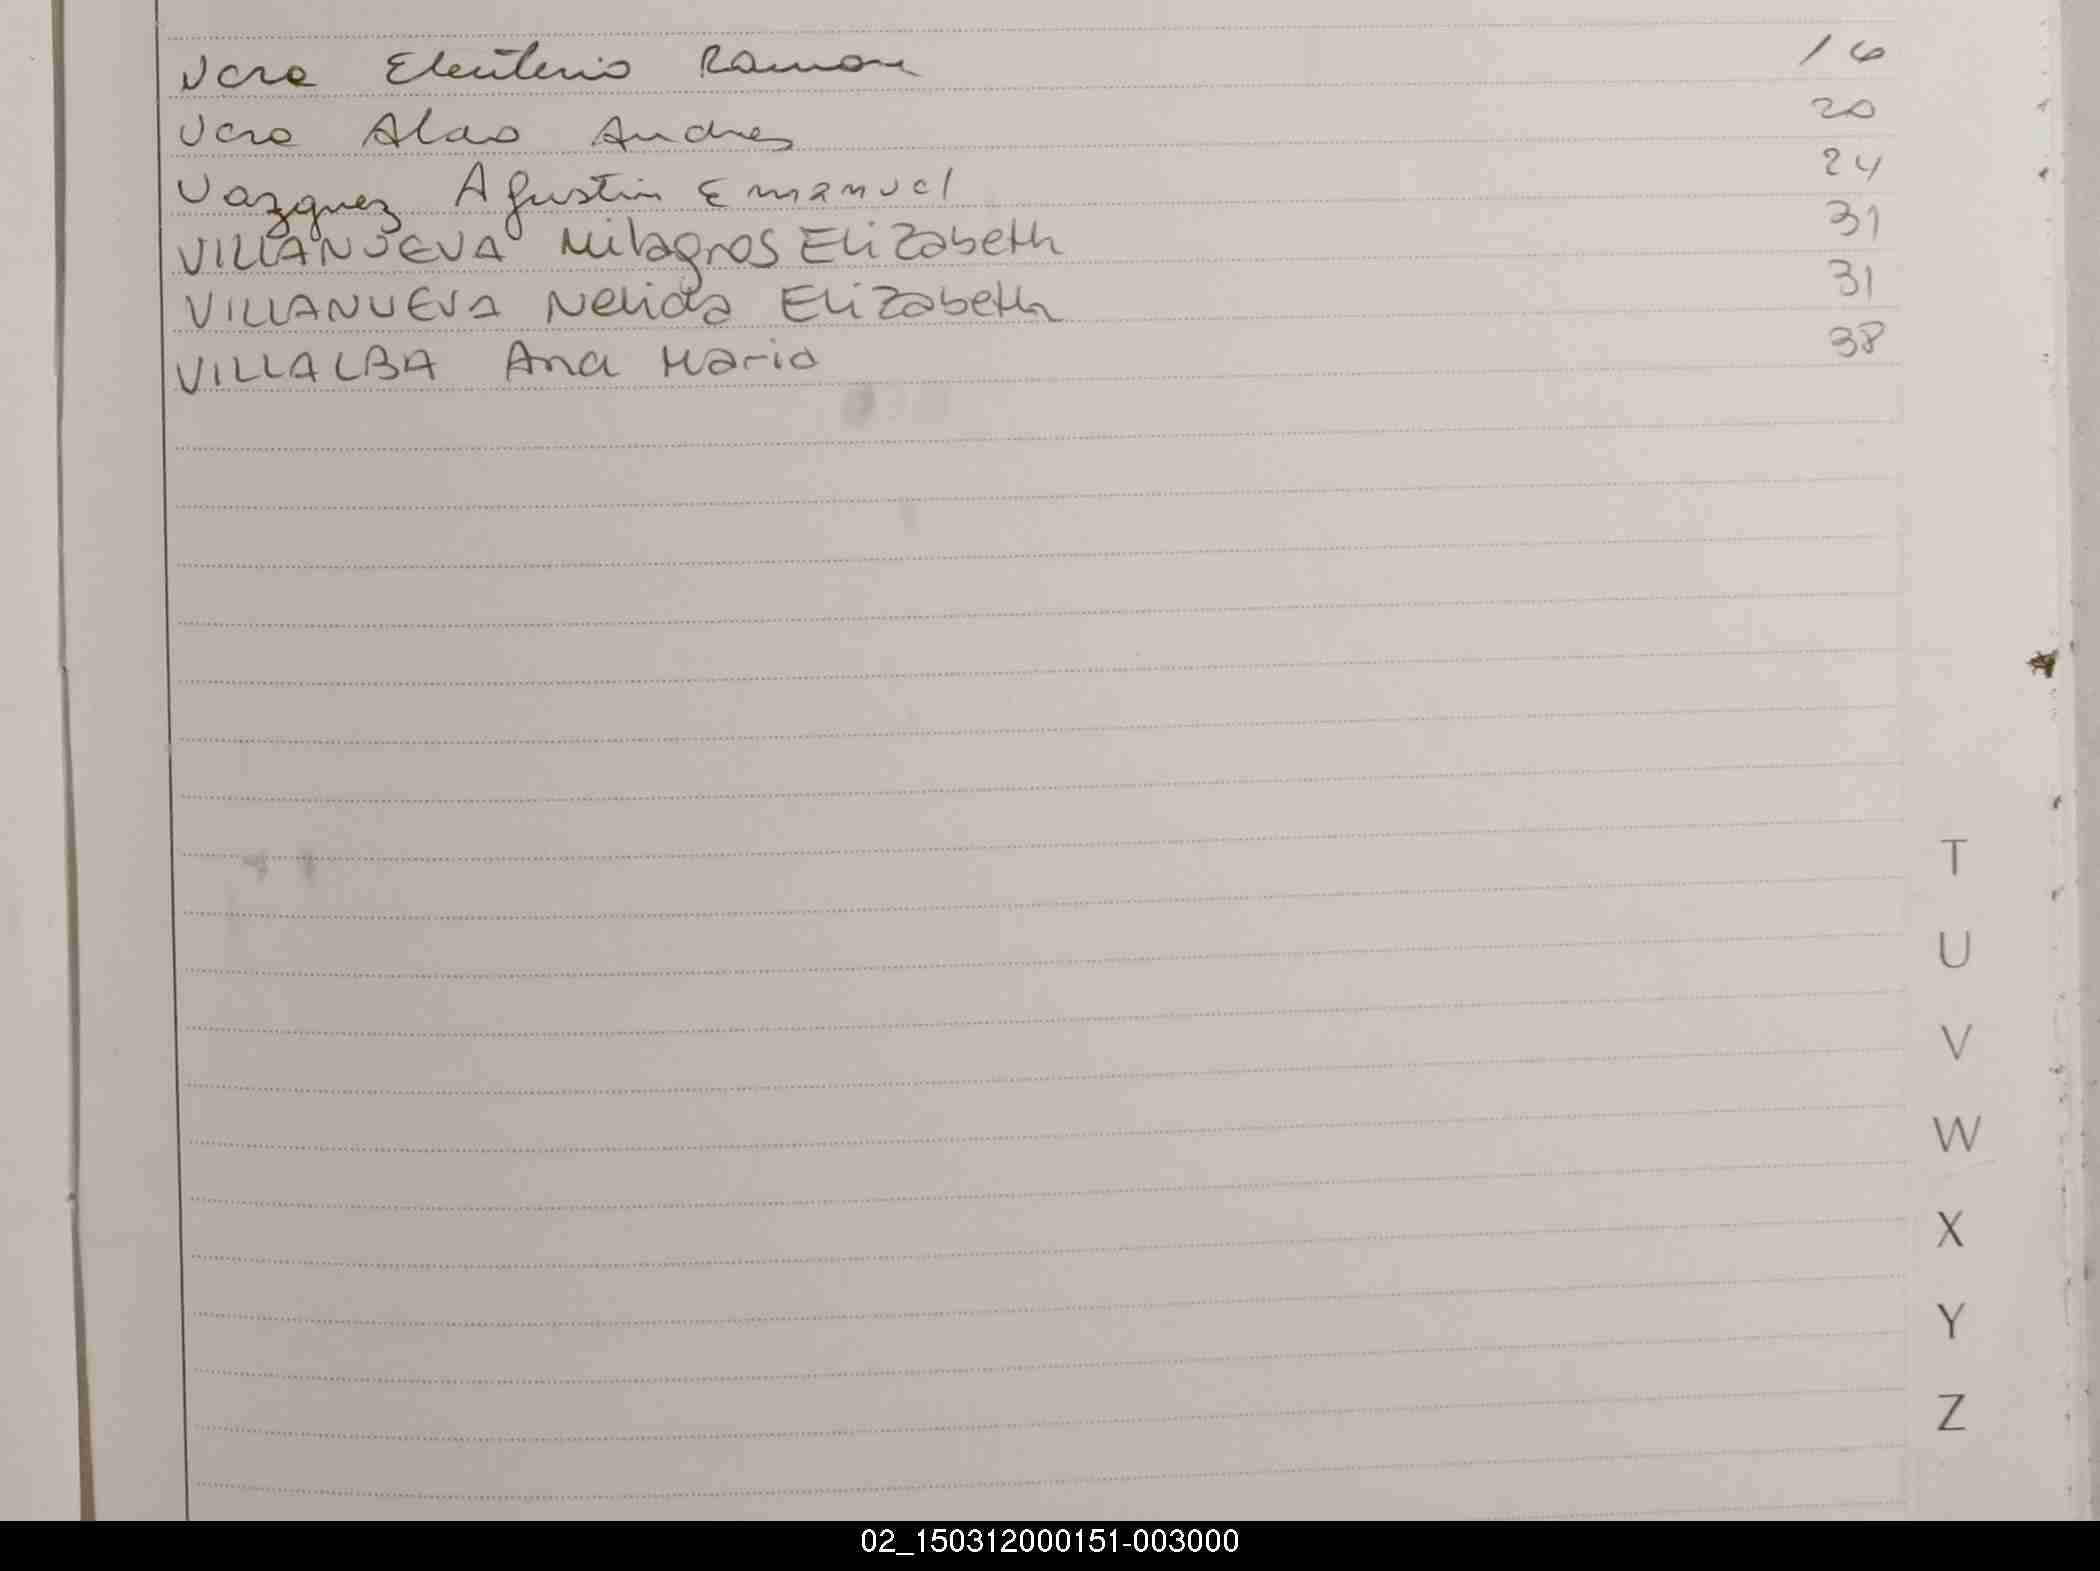 Vera Eleuterio Ramon 16
Vera Aldo Andres 20
Vazquez Agustin Emanuel 24
VILLANUEVA Milagros Elizabeth 31
VILLANUEVA Nelida Elizabeth 31
VILLALBA Ana Maria 38
T
U
V
W
X
Y
Z
02_150312000151-003000